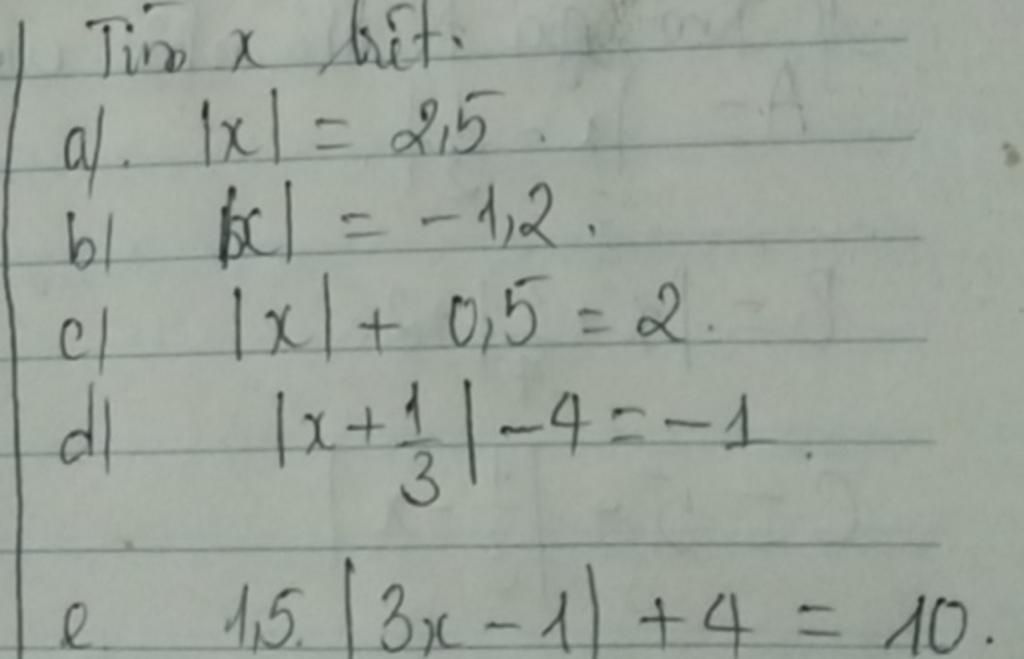 Tìm x biết.
a/. |x| = 2,5.
b/ |x| = -1,2.
c/ |x| + 0,5 = 2.
d/ |x + 1/3| - 4 = -1.
e 1,5. |3x - 1| + 4 = 10.